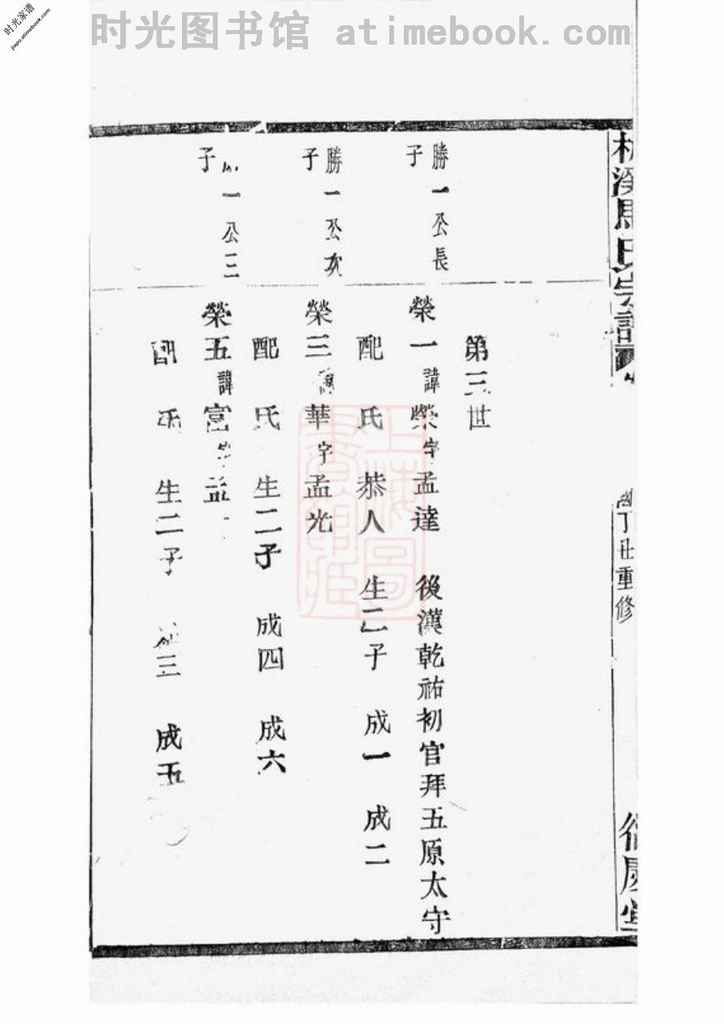 时光家谱
jiapu.atimebook.com
时光图书馆 atimebook.com
溪馬氏宗譜
丁丑重修
第三世
勝一公長
子
榮一諱榮字孟達 後漢乾祐初官拜五原太守
配 氏 恭人 生二子 成一 成二
勝一公次
子
榮三諱華字孟光
配 氏 生二子 成四 成六
一公三
子
榮五諱富字孟
配 氏 生二子 三 成五
上海圖書館藏